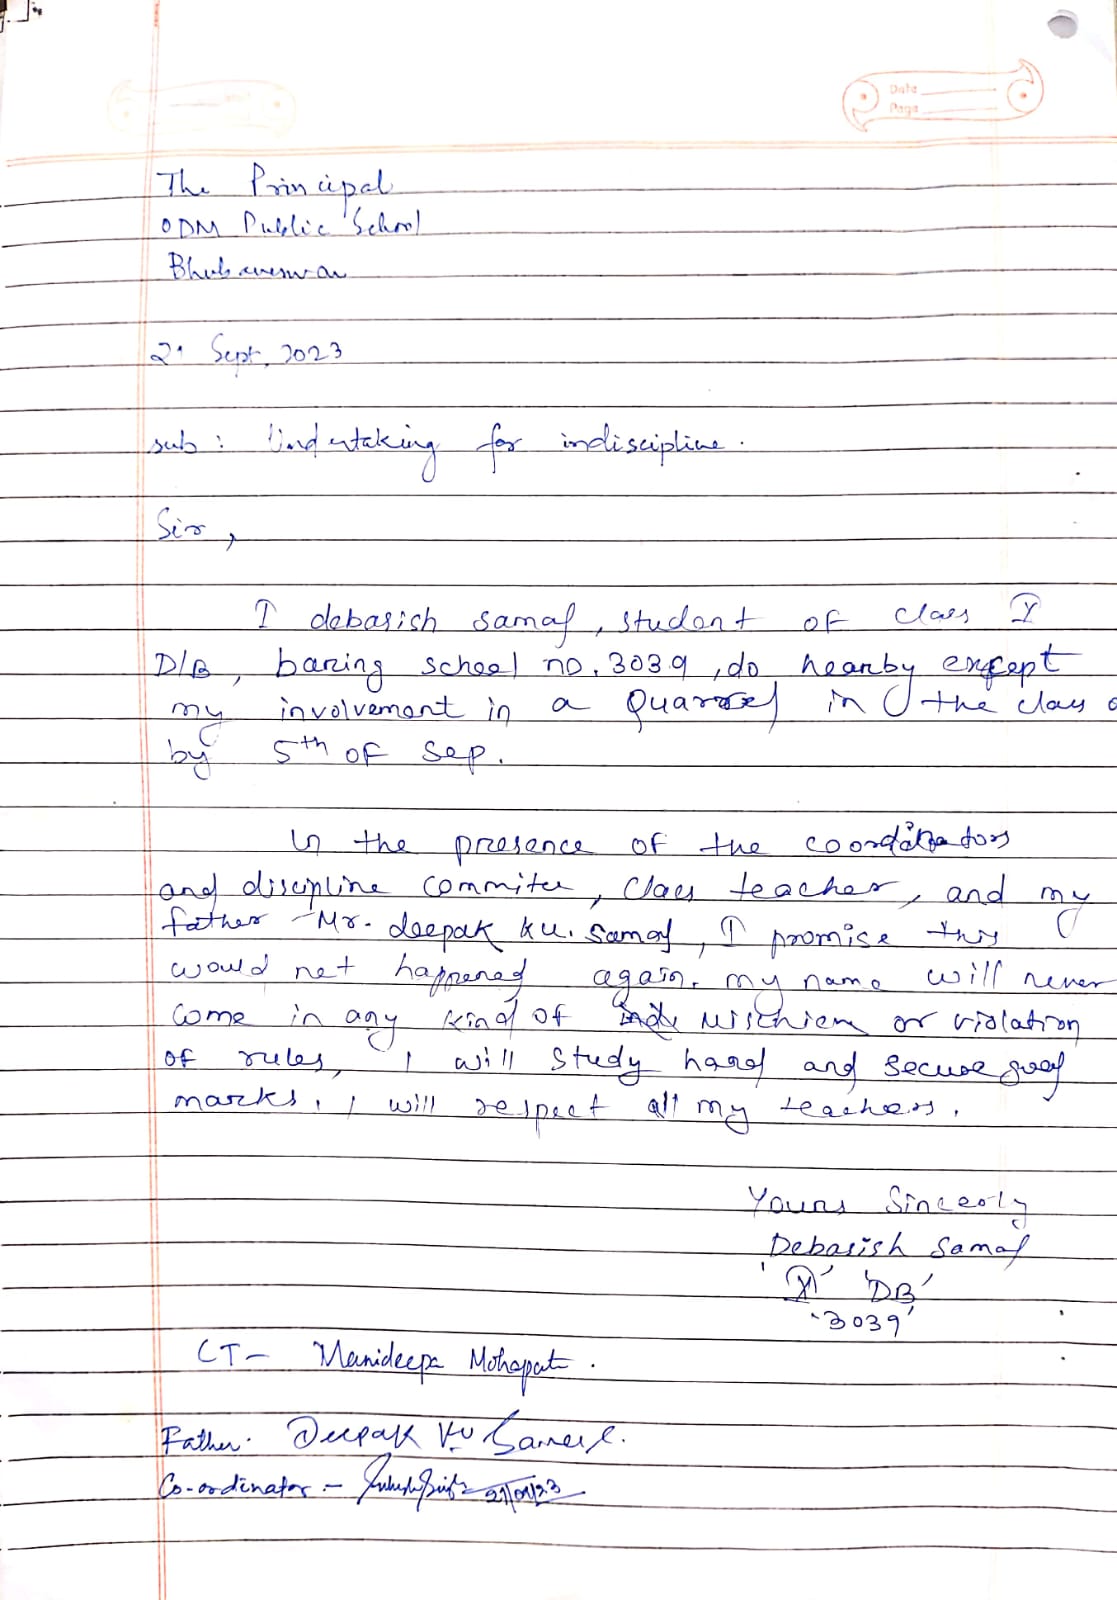 Date
Page
The Principal
ODM Public School
Bhubaneswar
21 Sept, 2023
sub : Undertaking for indiscipline.
Sir,
I debasish samal, student of class X
D/B, baring school no. 3039, do hearby except
my involvement in a Quarrel in the class
by 5th of sep.
In the presence of the coordinators
and discipline commitee, Class teacher, and my
father Mr. deepak ku. samal, I promise this
would not happened again. my name will never
come in any kind of mischien or violation
of rules, I will study hard and secure good
marks. I will respect all my teachers.
Yours Sincerly
Debasish Samal
'X' 'DB'
'3039'
CT- Manideepa Mohapatra.
Father. Deepak Ku Samal.
Co-ordinator - 21/09/23